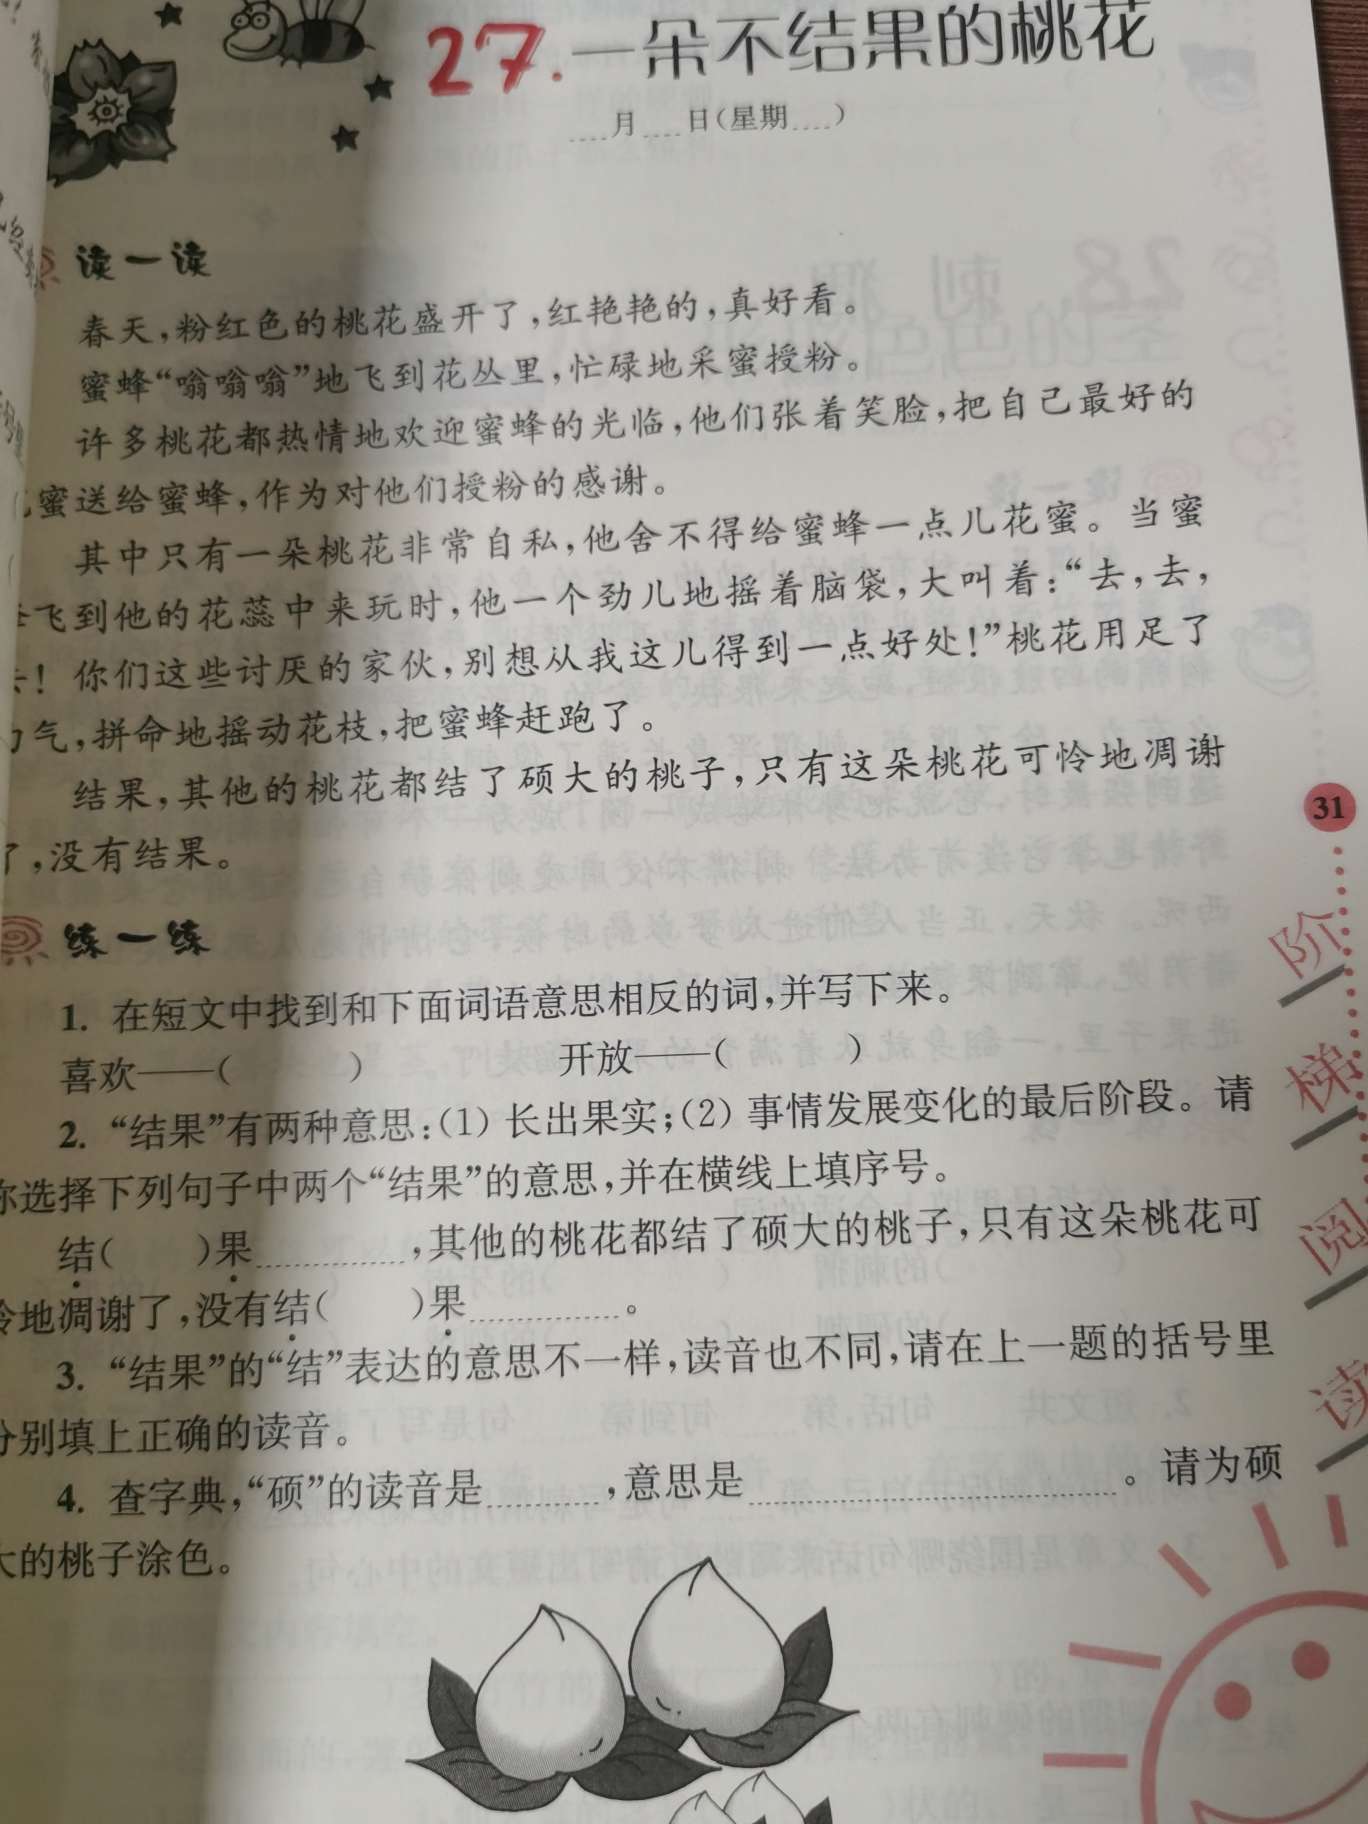 27. 一朵不结果的桃花
月 日(星期 )
读一读
春天,粉红色的桃花盛开了,红艳艳的,真好看。
蜜蜂“嗡嗡嗡”地飞到花丛里,忙碌地采蜜授粉。
许多桃花都热情地欢迎蜜蜂的光临,他们张着笑脸,把自己最好的
蜜送给蜜蜂,作为对他们授粉的感谢。
其中只有一朵桃花非常自私,他舍不得给蜜蜂一点儿花蜜。当蜜
飞到他的花蕊中来玩时,他一个劲儿地摇着脑袋,大叫着:“去,去,
!你们这些讨厌的家伙,别想从我这儿得到一点好处!”桃花用足了
气,拼命地摇动花枝,把蜜蜂赶跑了。
结果,其他的桃花都结了硕大的桃子,只有这朵桃花可怜地凋谢
了,没有结果。
练一练
1. 在短文中找到和下面词语意思相反的词,并写下来。
喜欢——( ) 开放——( )
2. “结果”有两种意思:(1) 长出果实;(2) 事情发展变化的最后阶段。请
你选择下列句子中两个“结果”的意思,并在横线上填序号。
结( )果 ,其他的桃花都结了硕大的桃子,只有这朵桃花可
怜地凋谢了,没有结( )果 。
3. “结果”的“结”表达的意思不一样,读音也不同,请在上一题的括号里
分别填上正确的读音。
4. 查字典,“硕”的读音是 ,意思是 。请为硕
大的桃子涂色。
31
阶
梯
阅
读